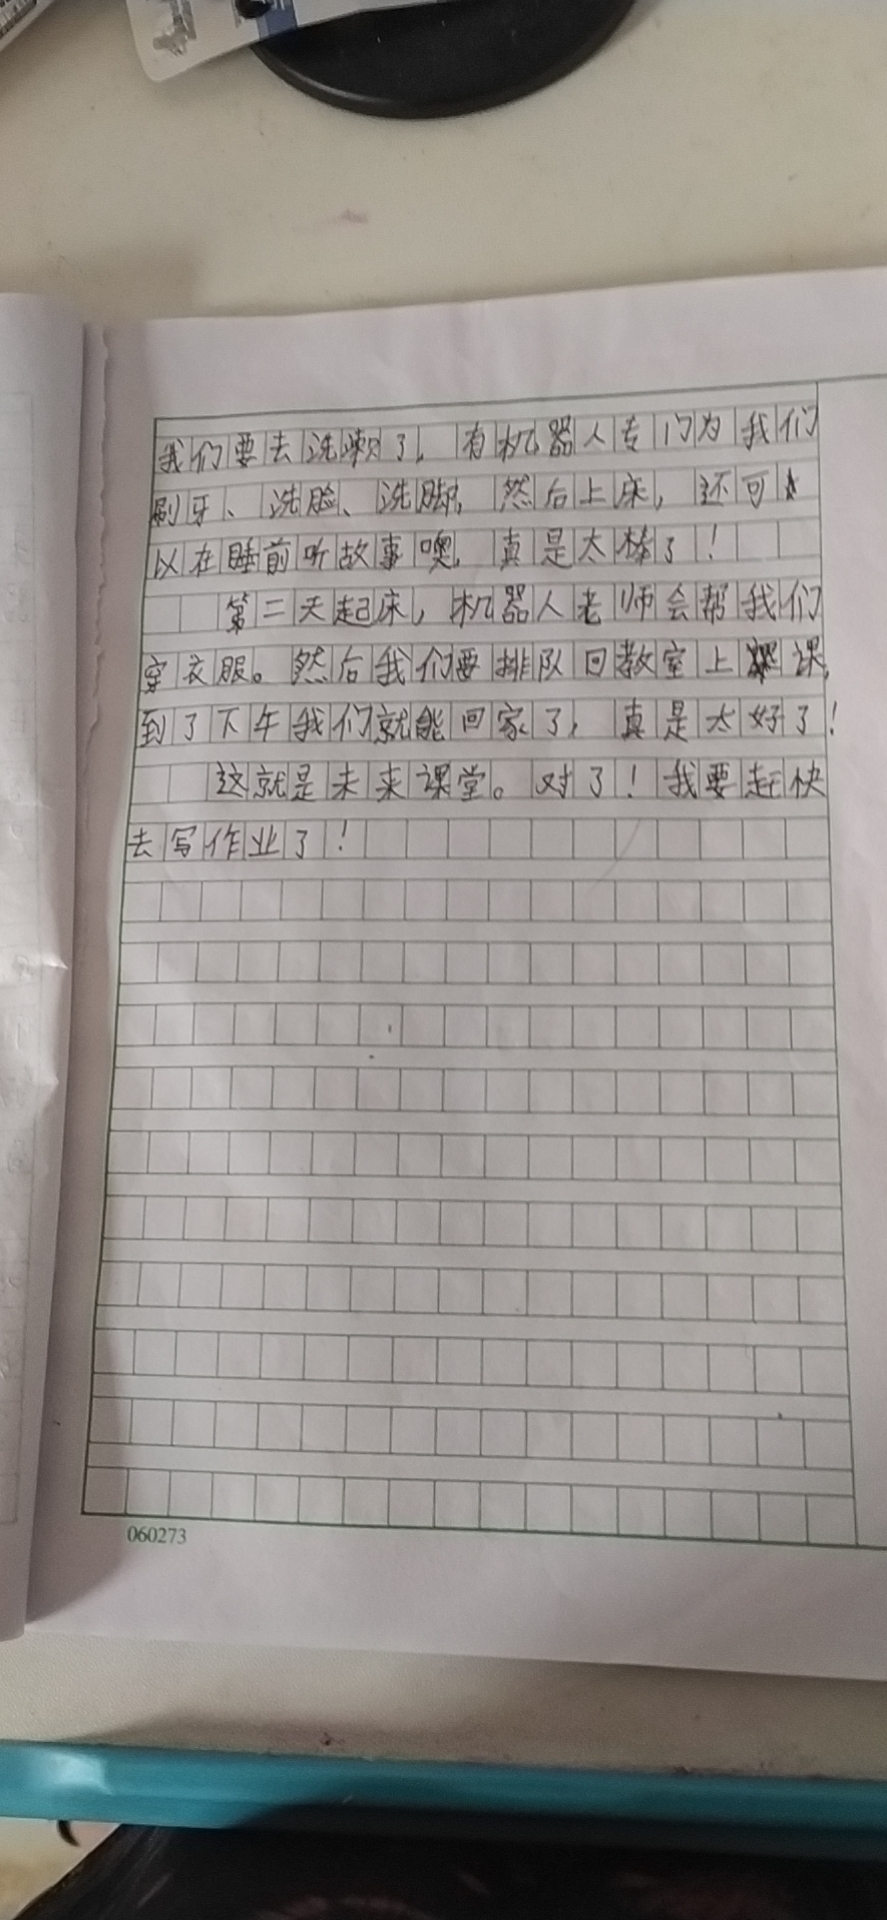 我们要去洗漱了，有机器人专门为我们
刷牙、洗脸、洗脚，然后上床，还可
以在睡前听故事噢，真是太棒了！
第二天起床，机器人老师会帮我们
穿衣服。然后我们要排队回教室上课，
到了下午我们就能回家了，真是太好了！
这就是未来课堂。对了！我要赶快
去写作业了！
060273